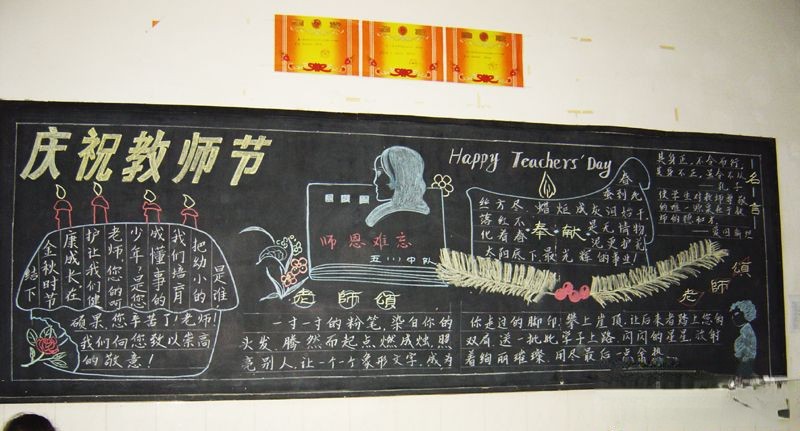 庆祝教师节
是谁
把幼小的
我们培育
成懂事的
少年?是您
老师!您的呵
护让我们健
康成长在
金秋时节
结下
硕果,您辛苦了!老师!
我们向您致以崇高
的敬意!
师恩难忘
五(1)中队
Happy Teachers' Day
春
蚕到死
丝方尽,蜡炬成灰泪始干
落红不是无情物
化着春泥更护花
奉献
太阳底下最光辉的事业!
其身正,不令而行,
其身不正,虽令不从
——孔子
名言
老師頌
一寸一寸的粉笔,染白你的
头发,腾然而起点燃成烛,照
亮别人,让一个个象形文字,成为
老师頌
你走过的脚印,攀上崖顶,让后来者踏上您的
双肩,送一批批学子上路,闪闪的星星,放射
着绚丽璀璨,用尽最后一点余热